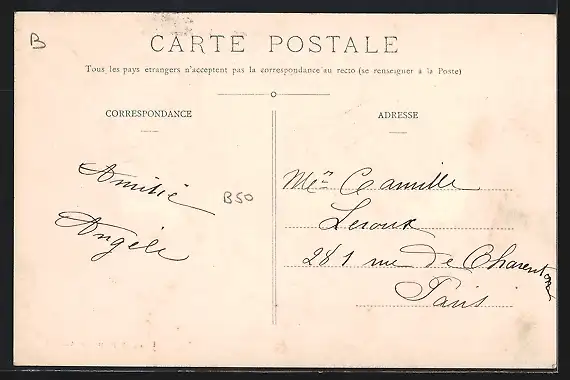 B
CARTE POSTALE
Tous les pays étrangers n'acceptent pas la correspondance au recto (se renseigner à la Poste)
CORRESPONDANCE
Amitié
Angèle
B50
ADRESSE
Camille
Leroux
281 rue de Charenton
Paris